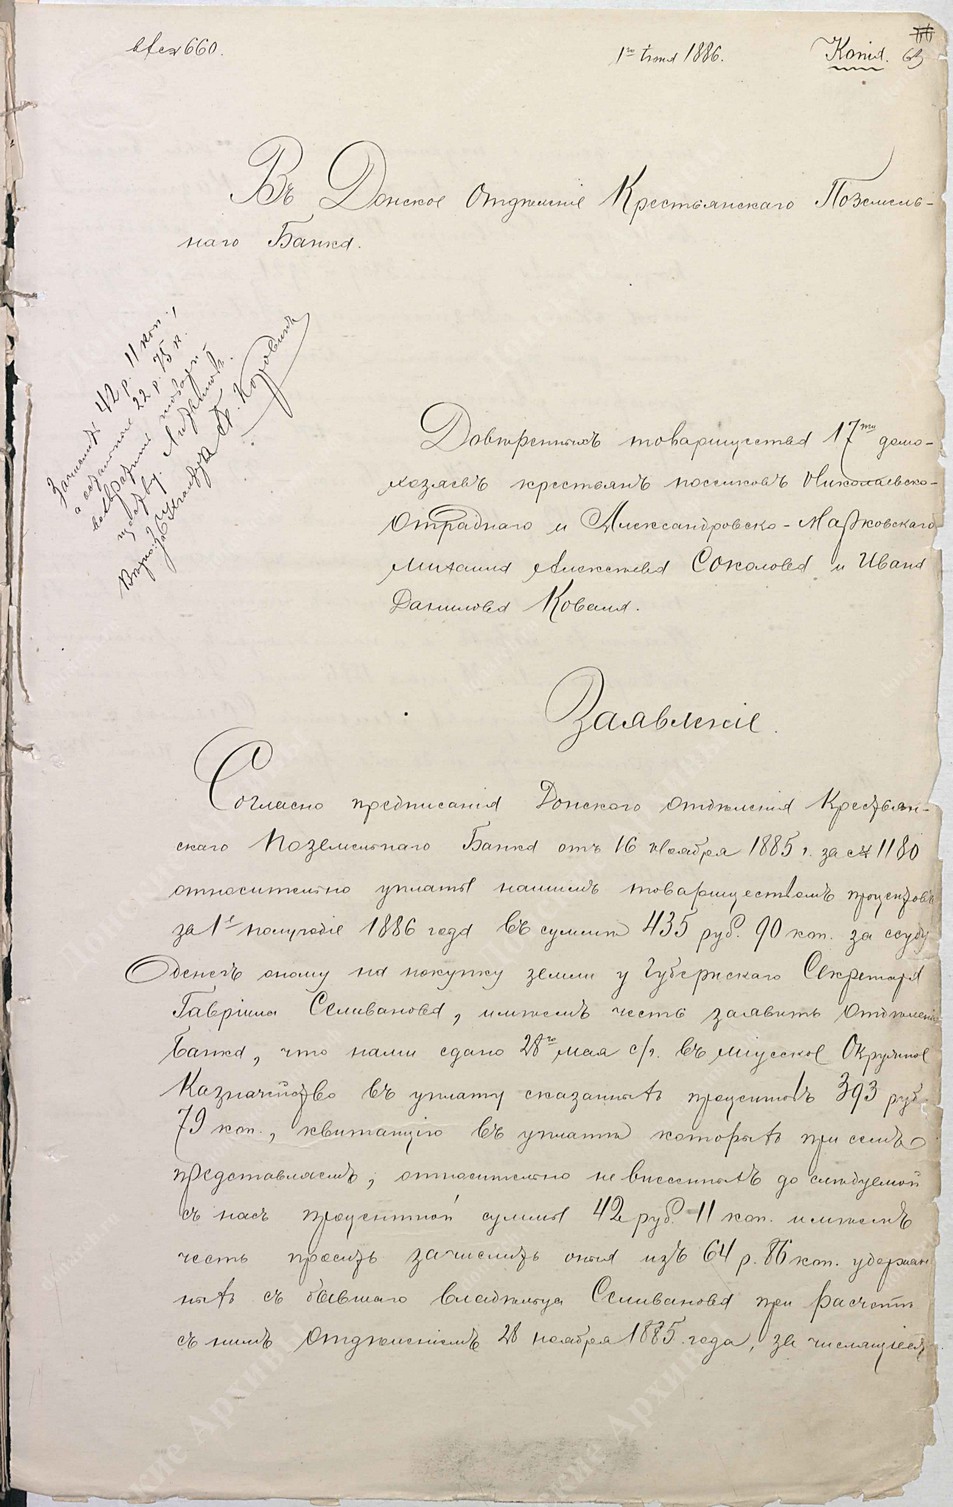 вх. № 660.
1го Iюня 1886.
Копія.
63
Въ Донское Отдѣленіе Крестьянскаго Поземель-
наго Банка.
Зачислить 42 р. 11 коп.,
а остальные 22 р. 75 к.
возвратить
Довѣренныхъ товарищества 17ти домо-
хозяевъ крестьянъ поселковъ Николаевско-
Отраднаго и Александровско-Марковскаго
Михаила Алексѣева Соколова и Ивана
Данилова Коваля.
Заявленіе.
Согласно предписанія Донского Отдѣленія Крестьян-
скаго Поземельнаго Банка отъ 16 Ноября 1885 г. за № 1180
относительно уплаты нашимъ товариществомъ процентовъ
за 1е полугодіе 1886 года въ суммѣ 435 руб. 90 коп. за ссуду
денегъ оному на покупку земли у Губернскаго Секретаря
Гавріила Селиванова, имѣемъ честь заявить Отдѣленію
Банка, что нами сдано 28го мая с/г. въ Міусское Окружное
Казначейство въ уплату сказанныхъ процентовъ 393 руб.
79 коп., квитанцію въ уплатѣ которыхъ при семъ
представляемъ, относительно не внесенныхъ до слѣдуемой
съ насъ процентной суммы 42 руб. 11 коп. имѣемъ
честь просить зачислить оныя изъ 64 р. 86 коп. удержан
ныхъ съ бывшаго владѣльца Селиванова при расчетѣ
съ нимъ Отдѣленіемъ 28 ноября 1885 года, за числящіеся